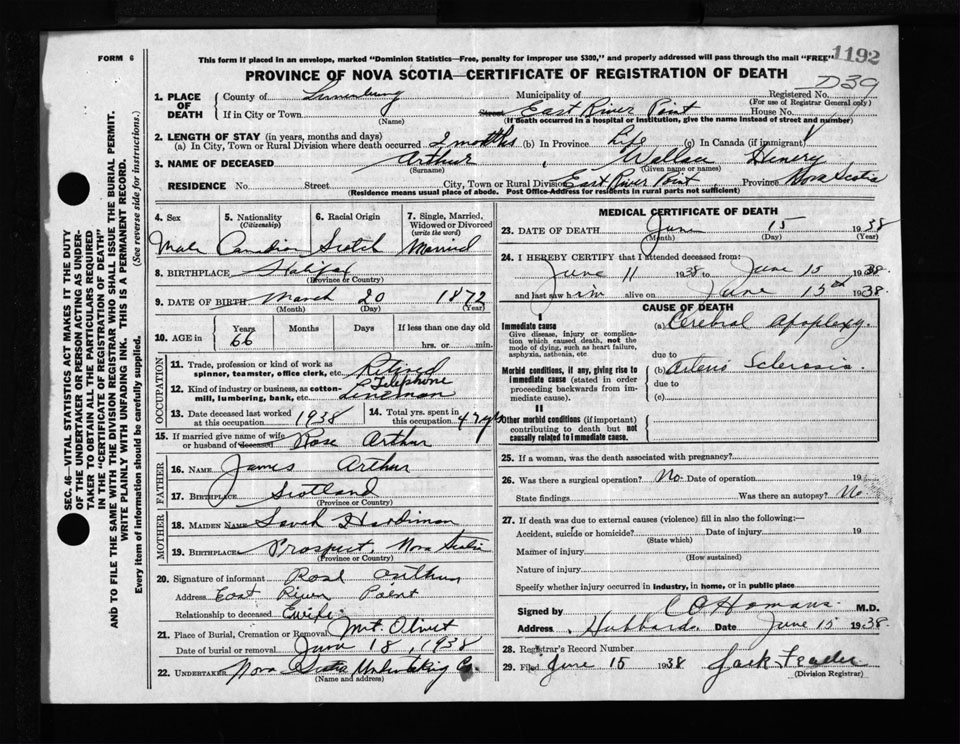 FORM 6
This form if placed in an envelope, marked "Dominion Statistics—Free, penalty for improper use $300," and properly addressed will pass through the mail "FREE"
1192
PROVINCE OF NOVA SCOTIA—CERTIFICATE OF REGISTRATION OF DEATH
D39
1. PLACE OF DEATH
County of Lunenburg Municipality of Registered No.
(For use of Registrar General only)
If in City or Town (Name) Street East River Point House No.
(If death occurred in a hospital or institution, give the name instead of street and number)
2. LENGTH OF STAY (in years, months and days)
(a) In City, Town or Rural Division where death occurred 2 months (b) In Province Life (c) In Canada (if immigrant)
3. NAME OF DECEASED Arthur , Wallace Henery
(Surname) (Given name or names)
RESIDENCE No. Street City, Town or Rural Division East River Point, Province Nova Scotia
(Residence means usual place of abode. Post Office Address for residents in rural parts not sufficient)
4. Sex
Male
5. Nationality (Citizenship)
Canadian
6. Racial Origin
Scotch
7. Single, Married, Widowed or Divorced (write the word)
Married
8. BIRTHPLACE Halifax
(Province or Country)
9. DATE OF BIRTH March 20 1872
(Month) (Day) (Year)
10. AGE in
Years Months Days If less than one day old
66 hrs. or min.
OCCUPATION
11. Trade, profession or kind of work as spinner, teamster, office clerk, etc. Retired
12. Kind of industry or business, as cotton-mill, lumbering, bank, etc. Telephone Lineman
13. Date deceased last worked at this occupation 1938
14. Total yrs. spent in this occupation 47 yrs
15. If married give name of wife or husband of deceased Rose Arthur
FATHER
16. NAME James Arthur
17. BIRTHPLACE Scotland
(Province or Country)
MOTHER
18. MAIDEN NAME Sarah Hardiman
19. BIRTHPLACE Prospect, Nova Scotia
(Province or Country)
20. Signature of informant Rose Arthur
Address East River Point
Relationship to deceased wife
21. Place of Burial, Cremation or Removal Mt Olivet
Date of burial or removal June 18, 1938
22. UNDERTAKER Nova Scotia Undertaking Co.
(Name and address)
MEDICAL CERTIFICATE OF DEATH
23. DATE OF DEATH June 15 1938
(Month) (Day) (Year)
24. I HEREBY CERTIFY that I attended deceased from:
June 11 1938 to June 15 1938
and last saw him alive on June 15th 1938.
CAUSE OF DEATH
I
Immediate cause
Give disease, injury or complication which caused death, not the mode of dying, such as heart failure, asphyxia, asthenia, etc
(a) Cerebral apoplexy.
due to
Morbid conditions, if any, giving rise to immediate cause (stated in order proceeding backwards from immediate cause).
(b) Arterio Sclerosis.
due to
(c)
II
Other morbid conditions (if important) contributing to death but not causally related to immediate cause.
25. If a woman, was the death associated with pregnancy?
26. Was there a surgical operation? No. Date of operation 19
State findings Was there an autopsy? No
27. If death was due to external causes (violence) fill in also the following:—
Accident, suicide or homicide? Date of injury 19
(State which)
Manner of injury
(How sustained)
Nature of injury
Specify whether injury occurred in industry, in home, or in public place
Signed by C O Homans. M.D.
Address Hubbards Date June 15 1938
28. Registrar's Record Number
29. Filed June 15 1938
(Division Registrar)
SEC. 46—VITAL STATISTICS ACT MAKES IT THE DUTY
OF THE UNDERTAKER OR PERSON ACTING AS UNDER-
TAKER TO OBTAIN ALL THE PARTICULARS REQUIRED
IN THE "CERTIFICATE OF REGISTRATION OF DEATH"
AND TO FILE THE SAME WITH THE DIVISION REGISTRAR WHO SHALL ISSUE THE BURIAL PERMIT.
WRITE PLAINLY WITH UNFADING INK. THIS IS A PERMANENT RECORD.
Every item of information should be carefully supplied. (See reverse side for instructions.)